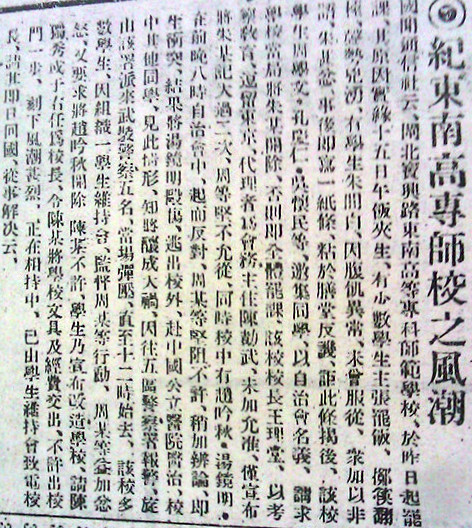 紀東南高專師校之風潮
國聞通信社云、閘北寶興路東南高等專科師範學校、於昨日起罷
課、其原因實緣十五日午飯夾生、有少數學生主張罷飯、
聲勢洶湧、有學生朱開白、因腹飢異常、未曾服從、衆加以非
議、朱某忿、事後即寫一紙條、粘於膳堂反譏、詎此條揭後、該校
學生周學文、孔慶仁、吳懷民等、邀集同學、以自治會名義、請求
學校當局將朱某開除、否則即全體罷課、該校校長王理堂、以考
察教育、逗留東京、代理者爲會務主任陳勸武、未加允准、僅宣布
將朱某記大過二次、周等堅不允從、同時校中有趙吟秋、湯鏡明、
在前晚八時自治會中、起而反對、周某等堅阻不許、稍加辨論、即
生衝突、結果將湯鏡明毆傷、逃出校外、赴中國公立醫院醫治、校
中其他同學、見此情形、知將釀成大禍、因往五區警察署報警、旋
由該署派來武裝警察五名、當場彈壓、直至十二時始去、該校多
數學生、因組織一學生維持會、監督周某等行動、周某等益加忿
怒、又要求將趙吟秋開除、陳某不許、學生乃宣布改造學校、請陳
獨秀或于右任爲校長、令陳某將學校文具及經費交出、不許出校
門一步、刻下風潮甚烈、正在相持中、已由學生維持會致電校
長、請其即日回國、從事解決云、